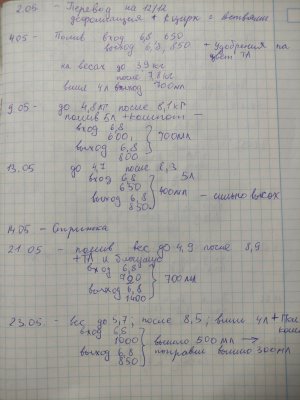 2.05 - Перевод на 12/12
дефолиация + R цирк с ветвями
4.05 - Полив вход 6,8 650
выход 6,8, 850 + удобрения на
цвет ТА
на весах до 3.9 кг
после 7.8 кг
вылил 4л выход 700мл
9.05 - до 4,8 кг после 8,1 кг
полив 5л +
вход 6,8
600,
выход 6,8
800
} 700мл
13.05 до 4.7 после 8,3
вход 6,8 5л
650
выход 6,8
850
} 400мл - сильно высох
14.05 - Стрижка
21.05 - полив вес до 4,9 после 8,9
+ТА и
вход 6,8
700
выход 6,8
1400
} 700мл
23.05 - вес до 5,7; после 8,5; вылил 4л +
вход 6,5
1000
выход 6,8
850
} вышло 500мл →
поправил вышло 300мл